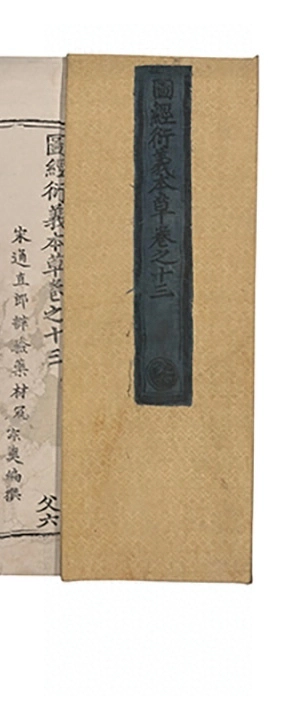 圖經衍義本草卷之十三
圖經衍義本草卷之十三
宋通直郎辨驗藥材寇宗奭編撰
父六